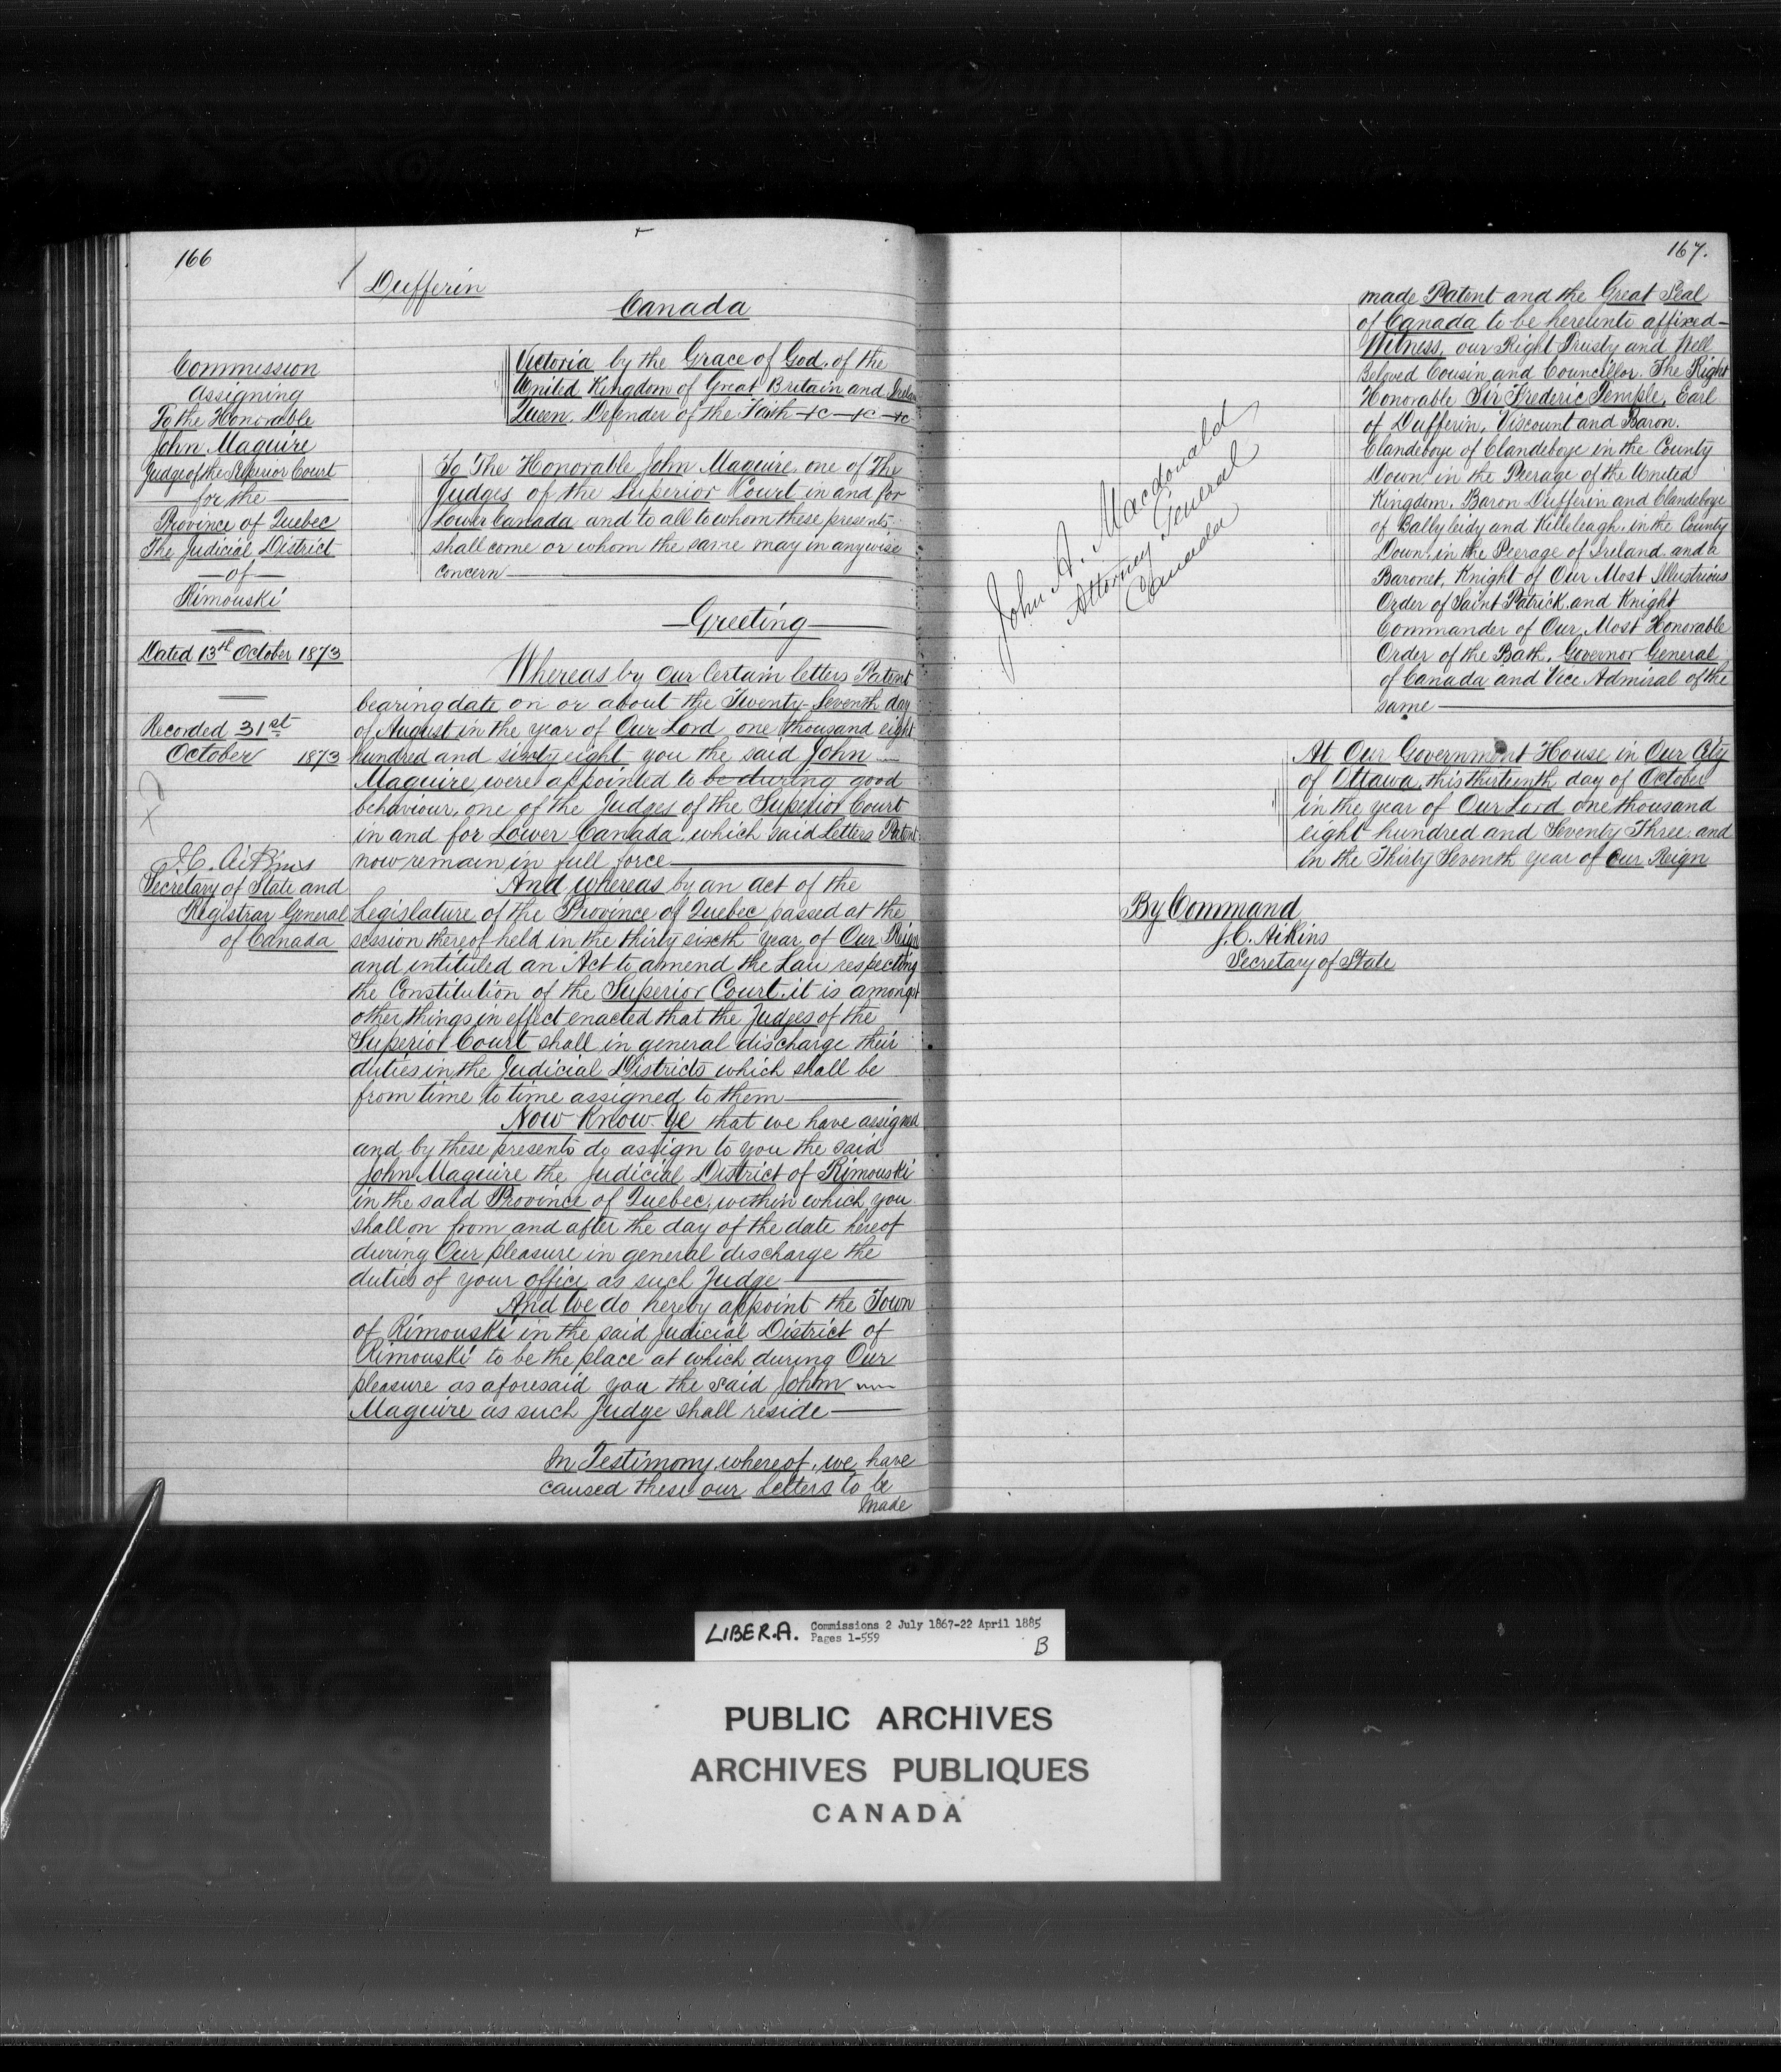 166
Dufferin
Canada
Commission
Assigning
To the Honorable
John Maguire
Judge of the Superior Court
for the
Province of Quebec
The Judicial District
of
Rimouski
Dated 13th October 1873
Recorded 31st
October 1873
J.C. Aikins
Secretary of State and
Registrar General
of Canada
Victoria by the Grace of God, of the
United Kingdom of Great Britain and
Queen, Defender of the Faith &c &c &c
To The Honorable John Maguire, one of The
Judges of the Superior Court in and for
Lower Canada and to all to whom these presents
shall come or whom the same may in anywise
concern
Greeting
Whereas by our Certain letters Patent
bearing date on or about the Twenty-Seventh day
of August in the year of Our Lord, one thousand eight
hundred and sixty eight, you the said John
Maguire were appointed to be during good
behaviour, one of the Judges of the Superior Court
in and for Lower Canada, which said Letters Patent
now remain in full force
And whereas by an act of the
Legislature of the Province of Quebec passed at the
session thereof held in the thirty sixth year of Our Reign
and intituled an Act to amend the Law respecting
the Constitution of the Superior Court, it is amongst
other things in effect enacted that the Judges of the
Superior Court shall in general discharge their
duties in the Judicial Districts which shall be
from time to time assigned to them
Now Know Ye that we have assigned
and by these presents do assign to you the said
John Maguire the Judicial District of Rimouski
in the said Province of Quebec, within which you
shall on from and after the day of the date hereof
during Our pleasure in general discharge the
duties of your office as such Judge
And We do hereby appoint the Town
of Rimouski in the said Judicial District of
Rimouski to be the place at which during Our
pleasure as aforesaid you the said John
Maguire as such Judge shall reside
In Testimony whereof, we have
caused these our Letters to be
made
167.
made Patent and the Great Seal
of Canada to be hereunto affixed—
Witness, our Right Trusty and Well
Beloved Cousin and Councillor. The Right
Honorable Sir Frederic Temple, Earl
of Dufferin, Viscount and Baron.
Clandeboye of Clandeboye in the County
Down in the Peerage of the United
Kingdom. Baron Dufferin and Clandeboye
of Ballyleidy and Killeleagh, in the County
Down, in the Peerage of Ireland and a
Baronet, Knight of Our Most Illustrious
Order of Saint Patrick and Knight
Commander of Our Most Honorable
Order of the Bath. Governor General
of Canada and Vice Admiral of the
same
John A. Macdonald
Attorney General
Canada
At Our Government House in Our City
of Ottawa, this thirteenth day of October
in the year of Our Lord one thousand
eight hundred and Seventy Three and
in the Thirty Seventh year of Our Reign
By Command
J.C. Aikins
Secretary of State
LIBER.A. Commissions 2 July 1867-22 April 1885
Pages 1-559
B
PUBLIC ARCHIVES
ARCHIVES PUBLIQUES
CANADA